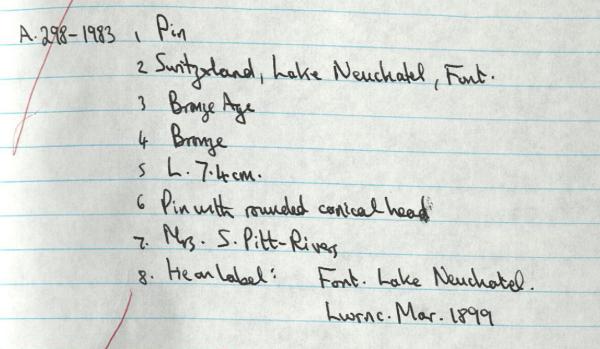 A.298-1983 1 Pin
2 Switzerland, Lake Neuchatel, Font.
3 Bronze Age
4 Bronze
5 L. 7.4cm.
6 Pin with rounded conical head
7. Mrs. S. Pitt-Rivers
8. He on Label: Font. Lake Neuchatel.
Lwrnc. Mar. 1899